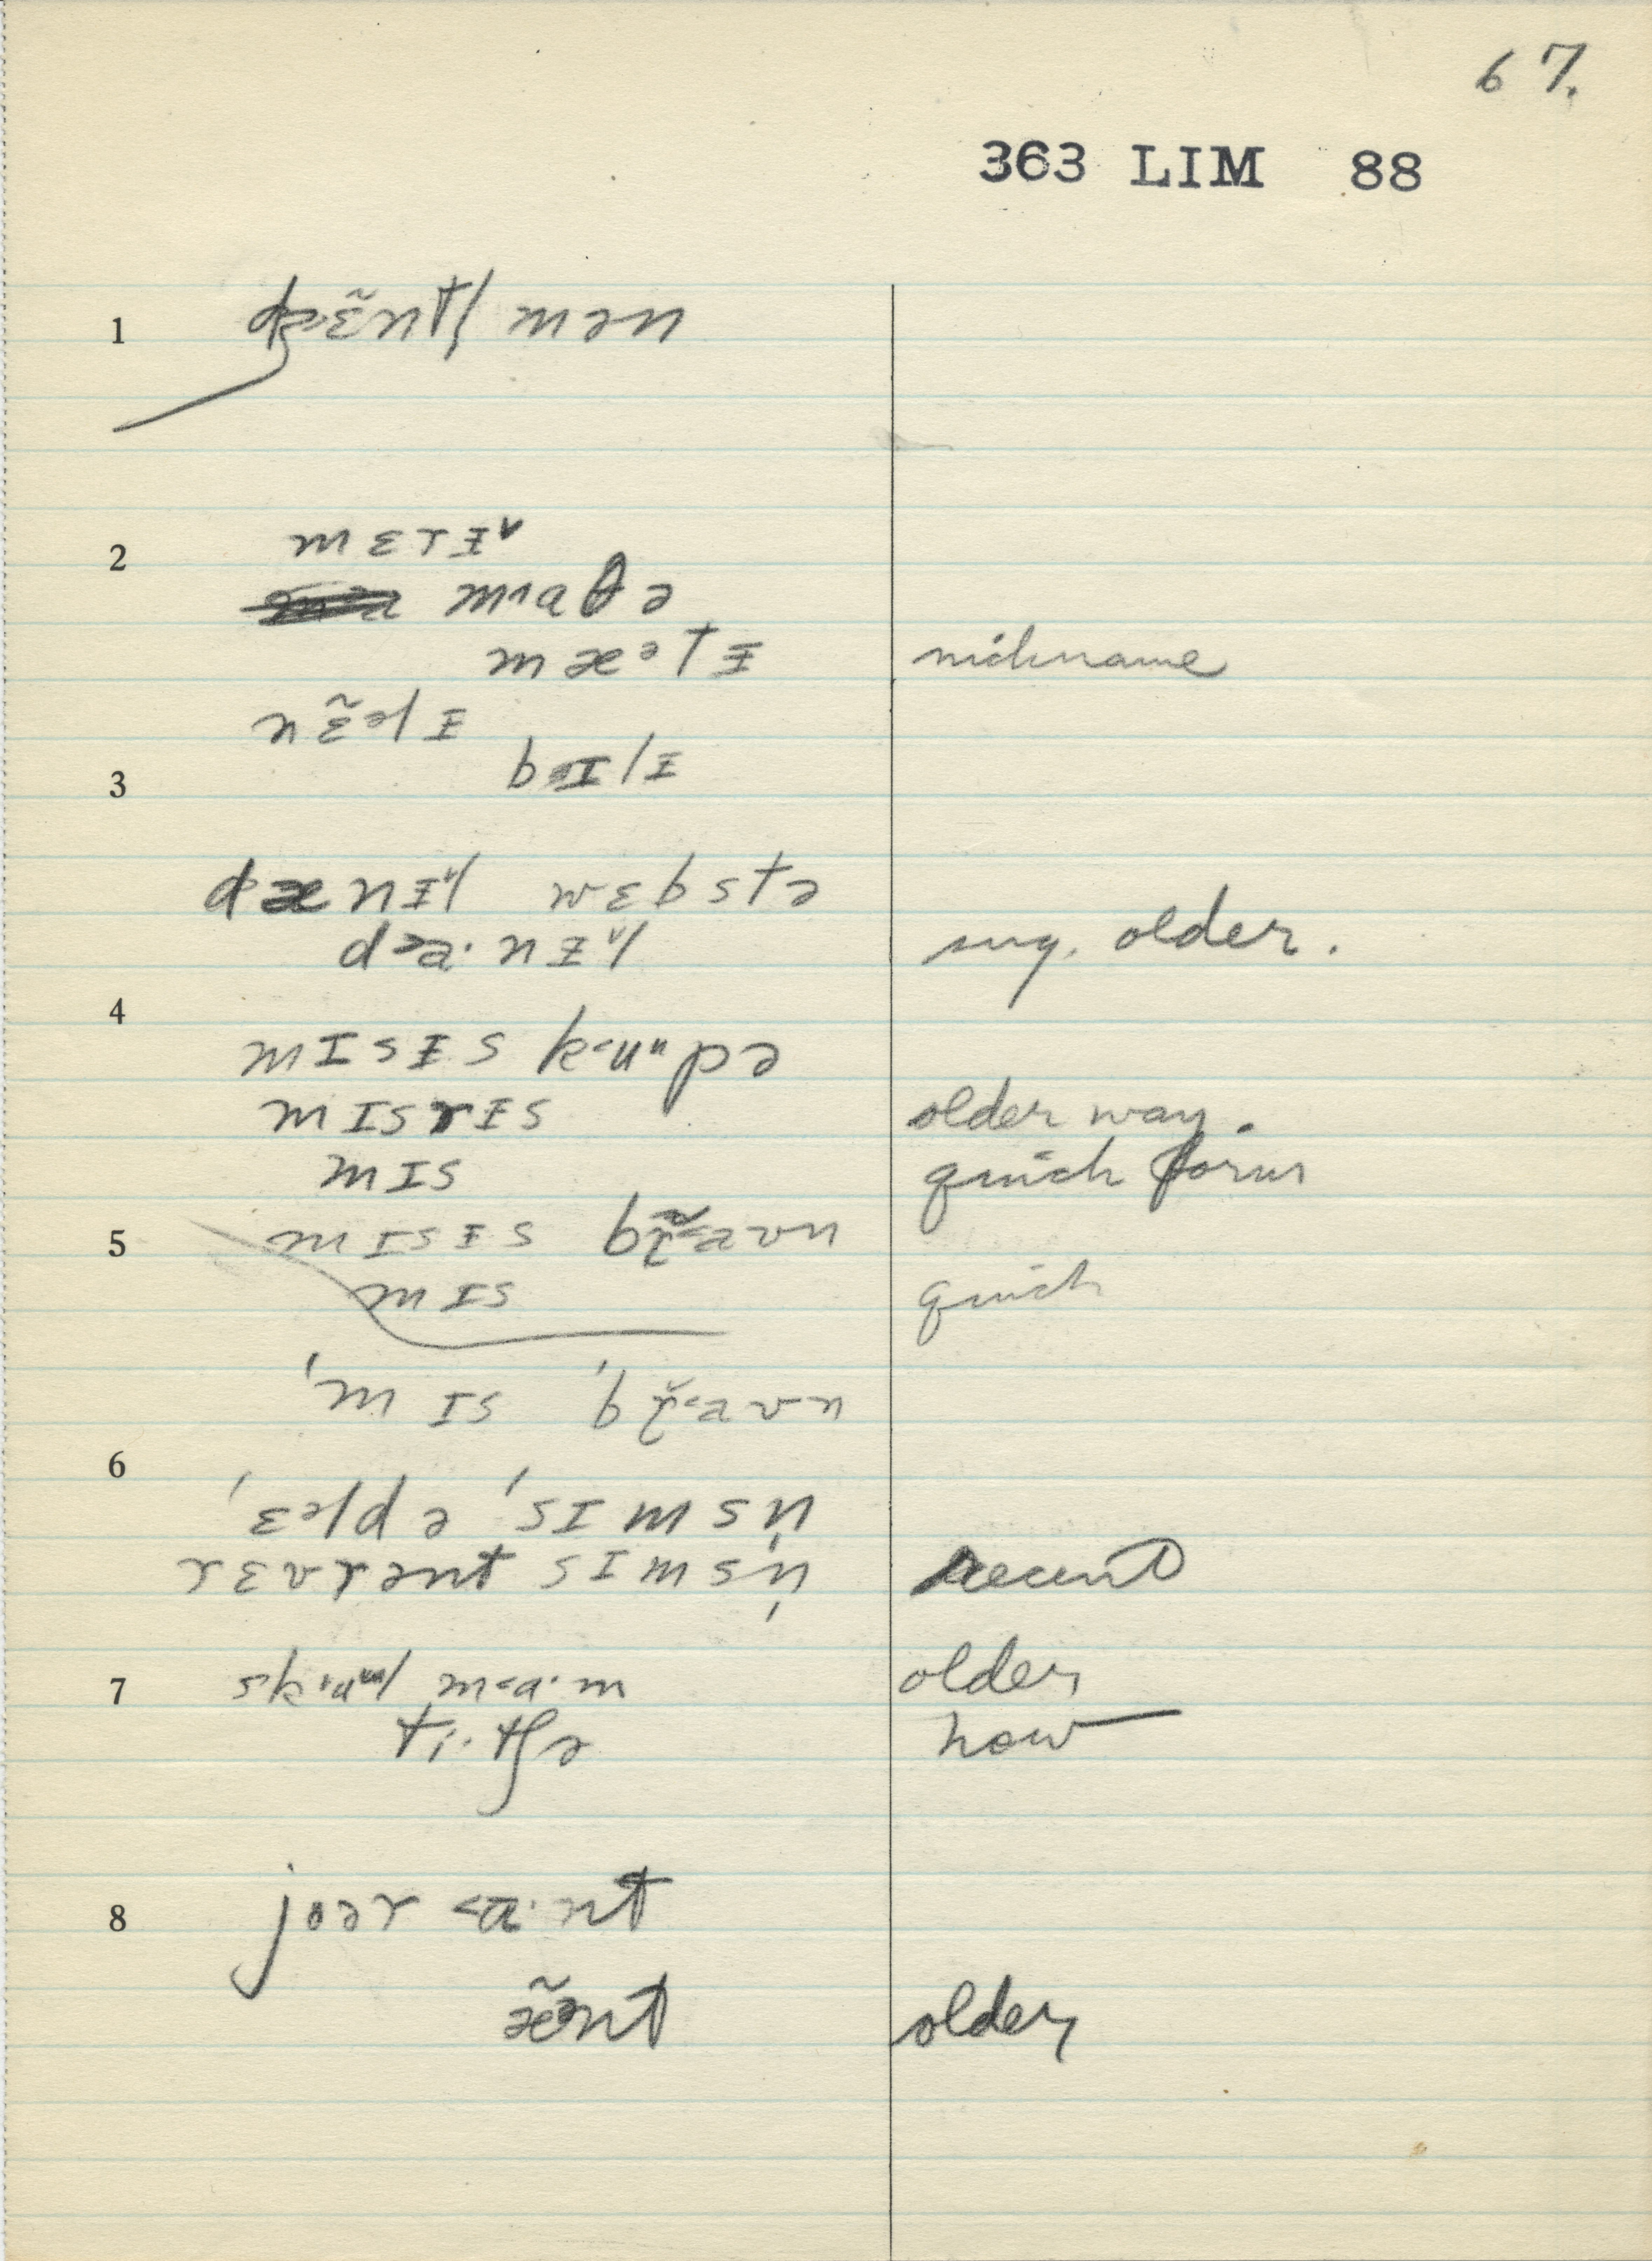 67.
363 LIM 88
1 dʒɛ̃ntl̩ mən
2 mɛrɨ˅
m˄aθə
mæᵊtɨ nickname
nɛ̃əlɨ
3 bɪlɨ
dænɨ˅l wɛbstə
d>a·nɨ˅l sug. older.
4 mɪsɨs k<uᵘpə
mɪsrɨs older way.
mɪs quick form
5 mɪsɨs br̰̃<aʊn
mɪs quick
ˈmɪs ˈbř̰<aʊn
6 ˈɛəldə ˈsɪmsn̩
rɛvrənt sɪmsn̩ recent
7 sk m<a·m older
ti·tʃə now
8 joər <a·nt
æ̃ənt older